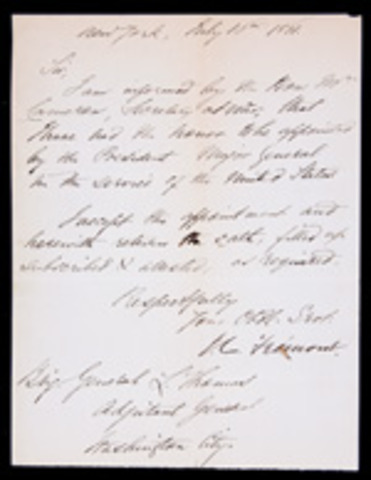 New York, July 15th 1861.
Sir,
I am informed by the Hon Mr
Cameron, Secretary of War, that
I have had the honor to be appointed
by the President Major General
in the service of the United States
I accept the appointment and
herewith return the oath, filled up
subscribed & attested, as required.
Respectfully
Your Obt. Svt.
J.C. Frémont.
Brig. General L Thomas
Adjutant General
Washington City.